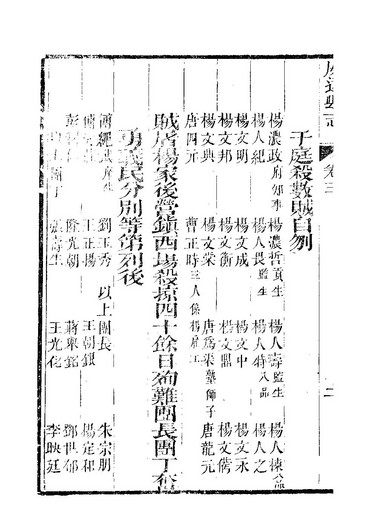 縣志 卷三 二
于庭殺數賊自刎
楊濃政府知事 楊濃哲貢生 楊人壽監生 楊人棟八品
楊人紀 楊人長監生 楊人特八品 楊人之
楊文明 楊文成 楊文中 楊文永
楊文邦 楊文衡 楊文鼎 楊文儁
楊文典 楊文棠 唐為渠墓師子 唐龍元
唐四元 曹正時三人係楊雇工
賊居楊家後營鎮西場殺掠四十餘日殉難團長團丁
勇義民分別等第列後
劉玉秀 以上團長 朱宗朋
王正揚 王朝銀 楊定和
光朝 蔣舉 鄧世郁
王光化 李映廷